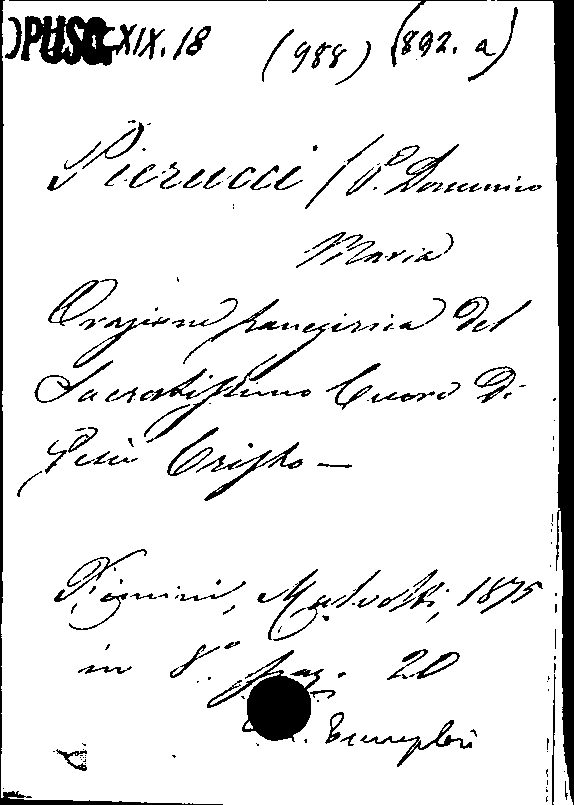 OPUSC. XIX. 18 (988) (892. a)
Pierucci / P. Domenico
Maria
Orazione panegirica del
Sacratissimo Cuore di
Gesù Cristo —
Rimini, Malvolti, 1875
in 8.° pag. 20
Esemplari